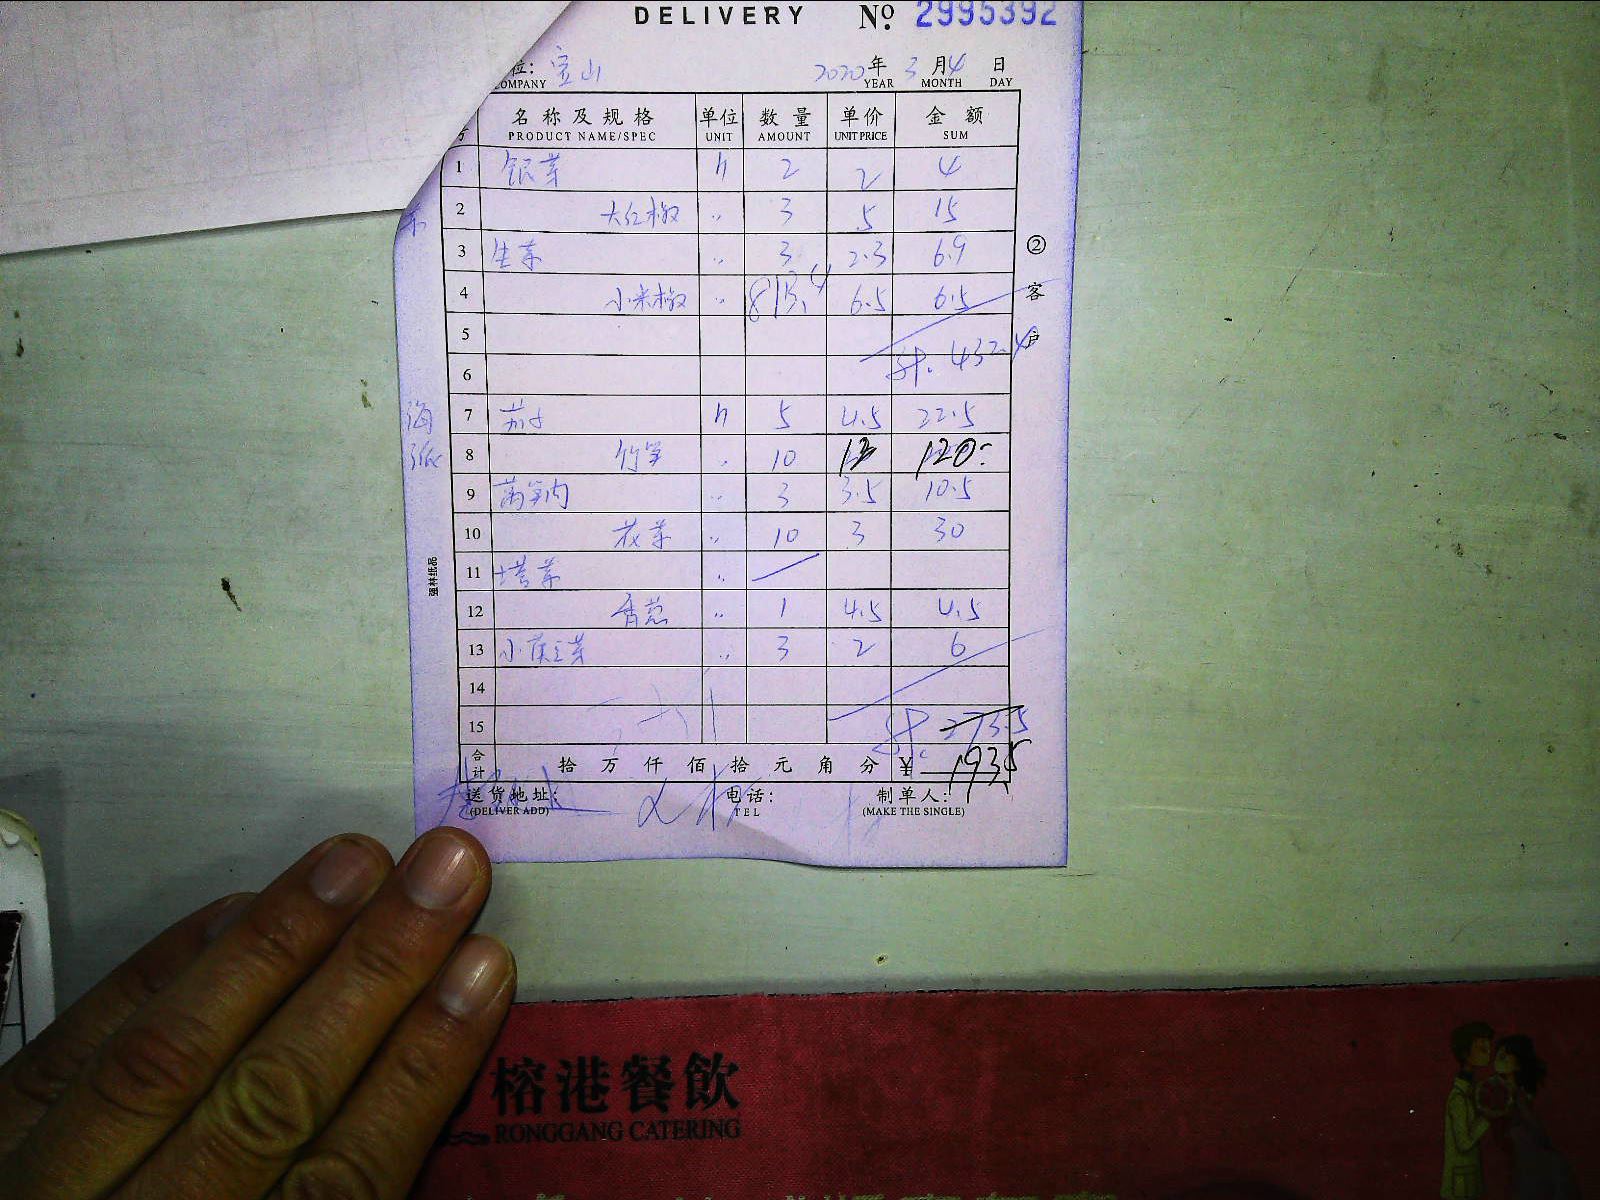 DELIVERY № 2995392
位: 宝山 2020年 3月 4日
COMPANY YEAR MONTH DAY
号 名称及规格 单位 数量 单价 金额
PRODUCT NAME/SPEC UNIT AMOUNT UNIT PRICE SUM
1 银芽 2 2 4
2 大红椒 〃 3 5 15
3 生菜 〃 3 2.3 6.9
②
4 小米椒 〃 6.5 6.5
客
5
户
432.4
6
7 茄子 5 4.5 22.5
8 竹笋 〃 10 12 120
9 莴笋肉 〃 3 3.5 10.5
10 花菜 〃 10 3 30
11 塔菜 〃
12 香葱 〃 1 4.5 4.5
13 〃 3 2 6
14
15 273.5
合计 拾 万 仟 佰 拾 元 角 分 ¥ 193.5
送货地址: 电话: 制单人:
(DELIVER ADD) TEL (MAKE THE SINGLE)
强林纸品
榕港餐飲
RONGGANG CATERING